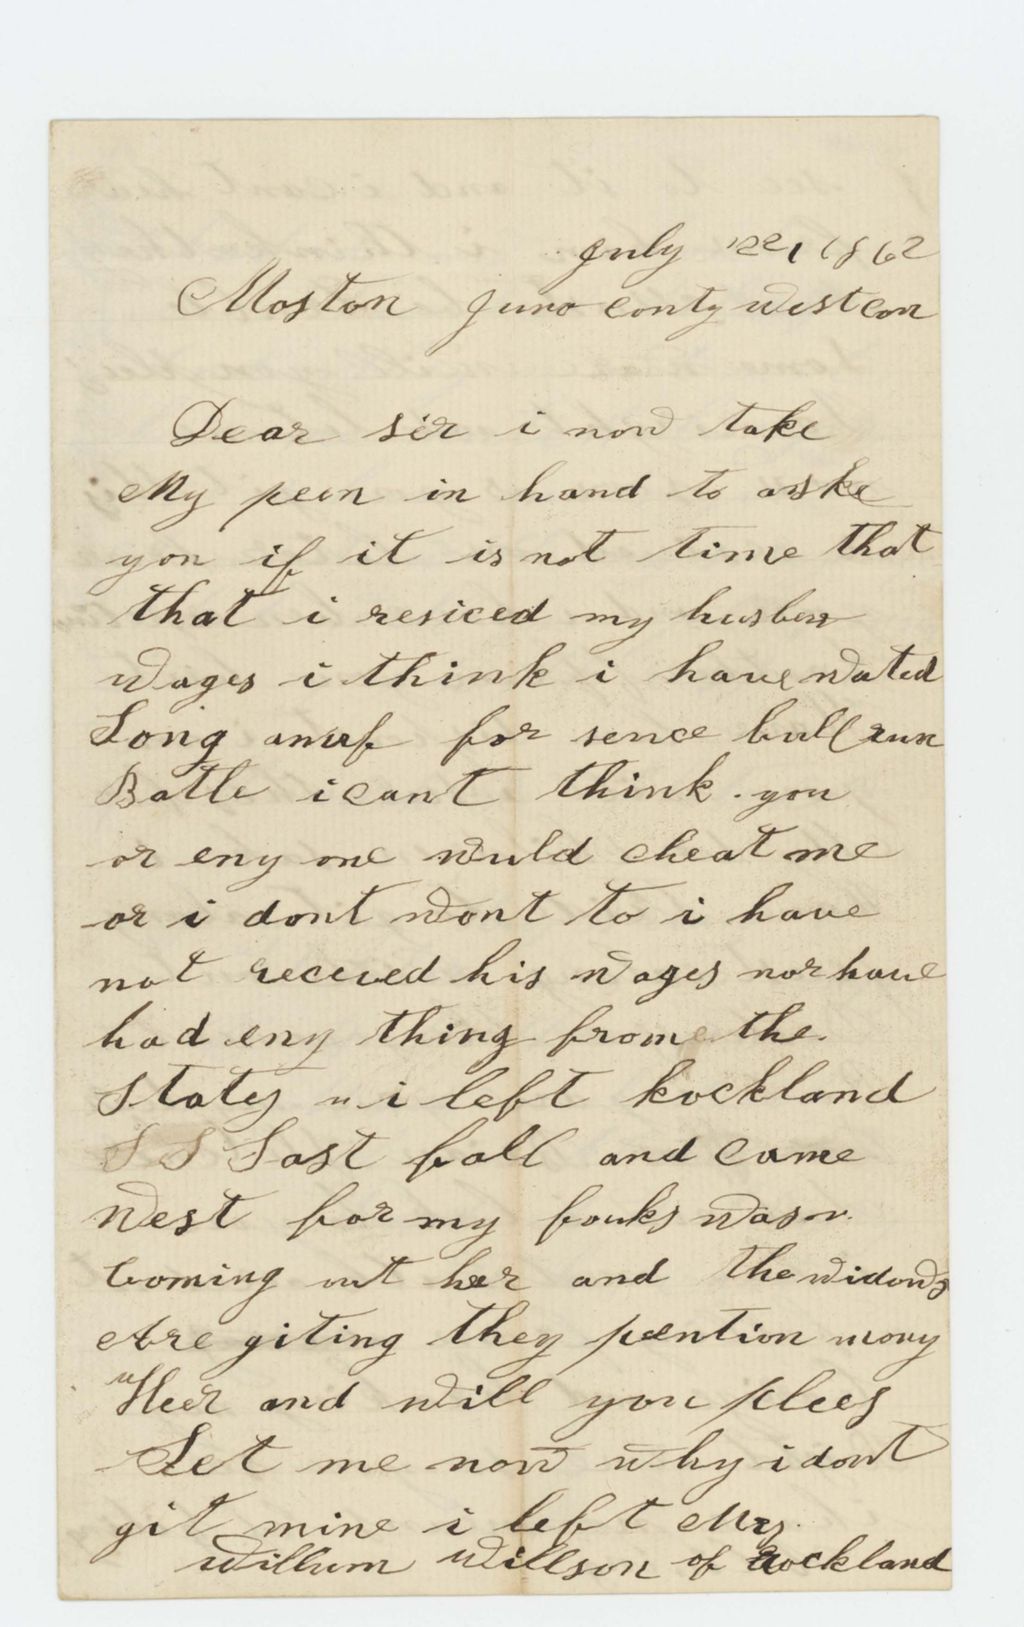 July 22, 1862
Moston Juno conty Westcon
Dear sir i now take
My peen in hand to aske
you if it is not time that
that i resiced my husben
Wages i think i have Wated
Long anuf for sence bull run
Batle i cant think you
or eny one would cheat me
or i dont Wont to i have
not receved his Wages nor have
had eny thing frome the
States i left Rockland
Last fall and came
West for my fouks Was
Coming out her and the Widows
Are giting they peention mony
Heer and Will you plees
Let me now why i dont
git mine i left Mrs.
Willum Willson of Rockland